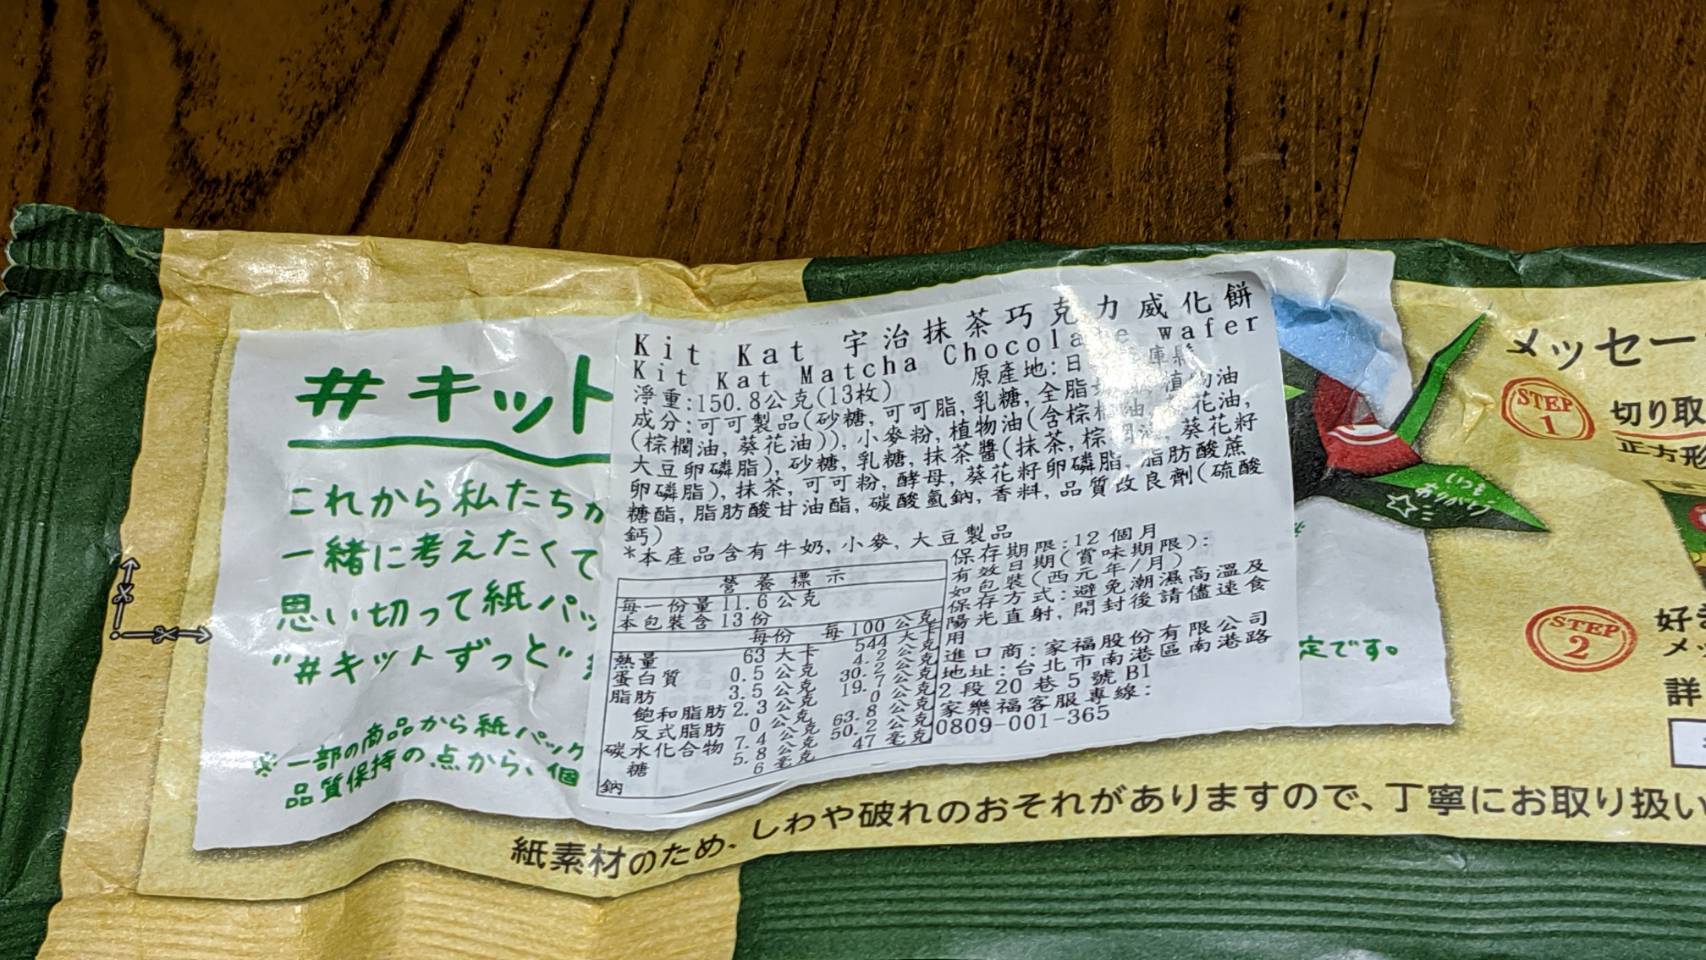 #キット
これから私たちが
一緒に考えたくて
思い切って紙パッ
"#キットずっと"
※一部の商品から紙パック
品質保持の点から、個
定です。
Kit Kat 宇治抹茶巧克力威化餅
Kit Kat Matcha Chocolate wafer
淨重:150.8公克(13枚)
原產地:日 庫縣
成分:可可製品(砂糖,可可脂,乳糖,全脂 植物油
(棕櫚油,葵花油)),小麥粉,植物油(含棕櫚油, 花油,
大豆卵磷脂),砂糖,乳糖,抹茶醬(抹茶,棕櫚油,葵花籽
卵磷脂),抹茶,可可粉,酵母,葵花籽卵磷脂,脂肪酸蔗
糖酯,脂肪酸甘油酯,碳酸氫鈉,香料,品質改良劑(硫酸
鈣)
*本產品含有牛奶,小麥,大豆製品
營養標示
每一份量 11.6 公克
本包裝含 13 份
每份 每 100 公克
熱量 63 大卡 544 大卡
蛋白質 0.5 公克 4.2 公克
脂肪 3.5 公克 30.2 公克
飽和脂肪 2.3 公克 19.7 公克
反式脂肪 0 公克 0 公克
碳水化合物 7.4 公克 63.8 公克
糖 5.8 公克 50.2 公克
鈉 6 毫克 47 毫克
保存期限:12個月
有效日期(賞味期限):
如包裝(西元年/月)
保存方式:避免潮濕高溫及
陽光直射,開封後請儘速食
用
進口商:家福股份有限公司
地址:台北市南港區南港路
2段20巷5號B1
家樂福客服專線:
0809-001-365
いつも
ありがとう
メッセー
STEP
1
切り取
正方形
STEP
2
好き
メッ
詳
紙素材のため、しわや破れのおそれがありますので、丁寧にお取り扱い